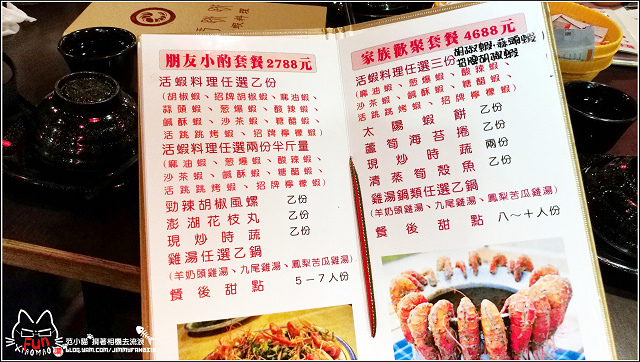 朋友小酌套餐2788元
活蝦料理任選乙份
(胡椒蝦、招牌胡椒蝦、麻油蝦、
蒜頭蝦、蔥爆蝦、酸辣蝦、
鹹酥蝦、沙茶蝦、糖醋蝦、
活跳跳烤蝦、招牌檸檬蝦)
活蝦料理任選兩份半斤量
(麻油蝦、蔥爆蝦、酸辣蝦、
沙茶蝦、鹹酥蝦、糖醋蝦、
活跳跳烤蝦、招牌檸檬蝦)
勁辣胡椒風螺 乙份
澎湖花枝丸 乙份
現炒時蔬 乙份
雞湯任選乙鍋
(羊奶頭雞湯、九尾雞湯、鳳梨苦瓜雞湯)
餐後甜點 5－7人份
家族歡聚套餐 4688元
胡椒蝦.蒜頭蝦
招牌胡椒蝦
活蝦料理任選三份
(麻油蝦、蔥爆蝦、酸辣蝦、
沙茶蝦、鹹酥蝦、糖醋蝦、
活跳跳烤蝦、招牌檸檬蝦)
太陽蝦餅 乙份
蘆筍海苔捲 乙份
現炒時蔬 兩份
清蒸筍殼魚 乙份
雞湯鍋類任選乙鍋
(羊奶頭雞湯、九尾雞湯、鳳梨苦瓜雞湯)
餐後甜點 八～十人份
FUN
范小貓 揹著相機去流浪